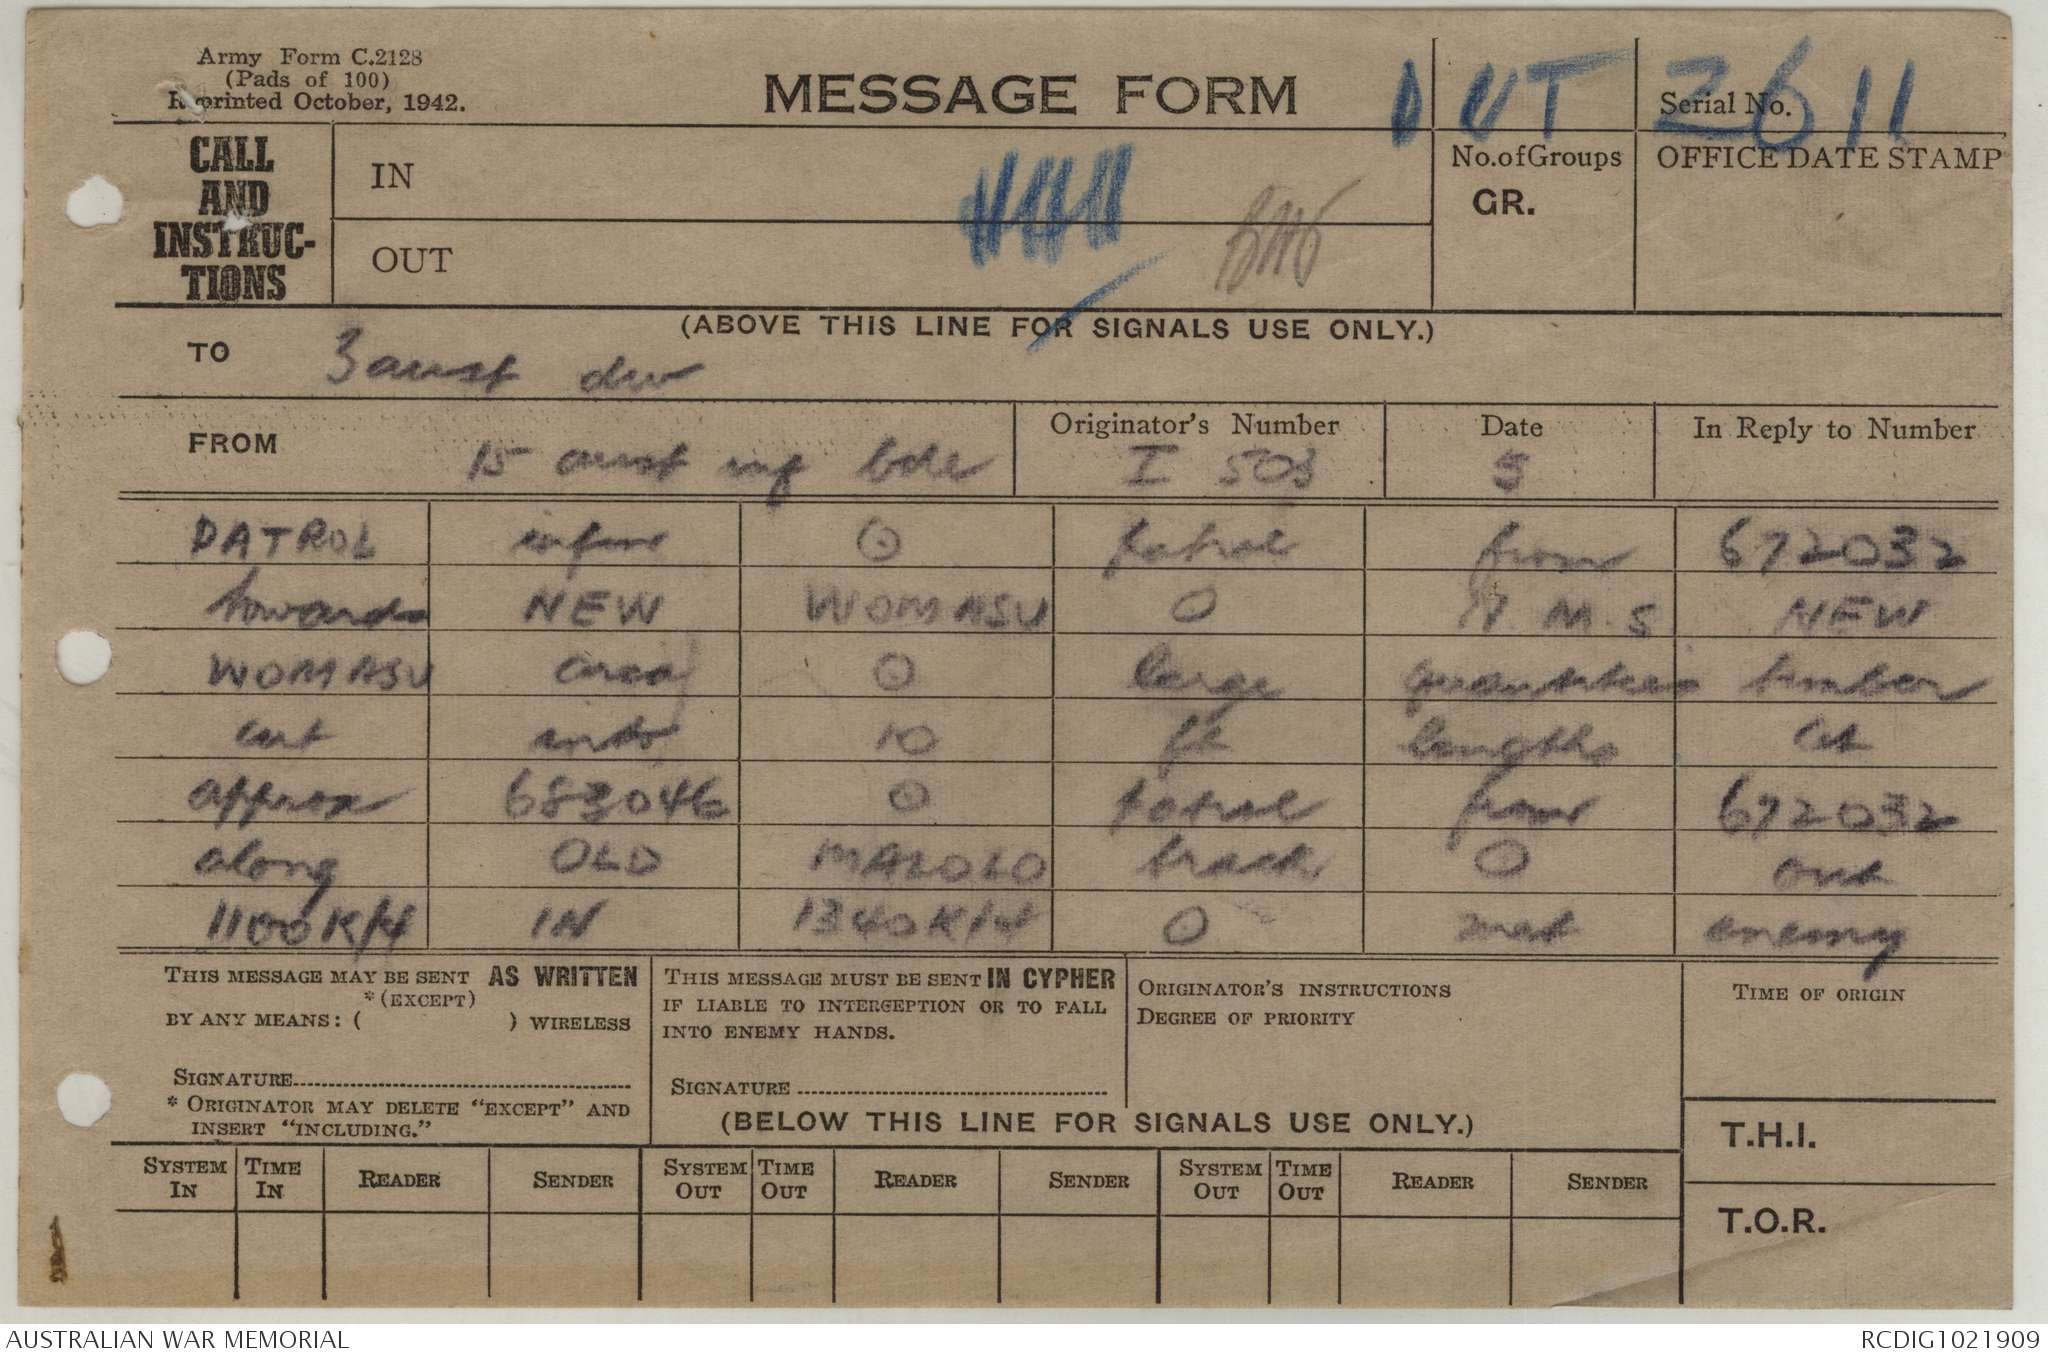 Army Form C.2128
(Pads of 100)
Reprinted October, 1942.
MESSAGE FORM
OUT 2611
Serial No.
CALL AND INSTRUC-TIONS
IN
OUT
No. of Groups
GR.
OFFICE DATE STAMP
(ABOVE THIS LINE FOR SIGNALS USE ONLY.)
TO 3 aust div
FROM 15 aust inf bde
Originator's Number I 503
Date 5
In Reply to Number
PATROL infm ⊙ patrol from 672032
towards NEW WOMASU O N.M.S NEW
WOMASU area ⊙ large quantities timber
cut into 10 ft lengths at
approx 683046 ⊙ patrol from 672032
along OLD MALOLO track O out
1100K/4 IN 1340K/4 O met enemy
THIS MESSAGE MAY BE SENT AS WRITTEN
*(EXCEPT)
BY ANY MEANS: ( ) WIRELESS
SIGNATURE
* ORIGINATOR MAY DELETE "EXCEPT" AND
INSERT "INCLUDING."
THIS MESSAGE MUST BE SENT IN CYPHER
IF LIABLE TO INTERCEPTION OR TO FALL
INTO ENEMY HANDS.
SIGNATURE
ORIGINATOR'S INSTRUCTIONS
DEGREE OF PRIORITY
TIME OF ORIGIN
(BELOW THIS LINE FOR SIGNALS USE ONLY.)
T.H.I.
SYSTEM IN TIME IN READER SENDER SYSTEM OUT TIME OUT READER SENDER SYSTEM OUT TIME OUT READER SENDER
T.O.R.
AUSTRALIAN WAR MEMORIAL
RCDIG1021909